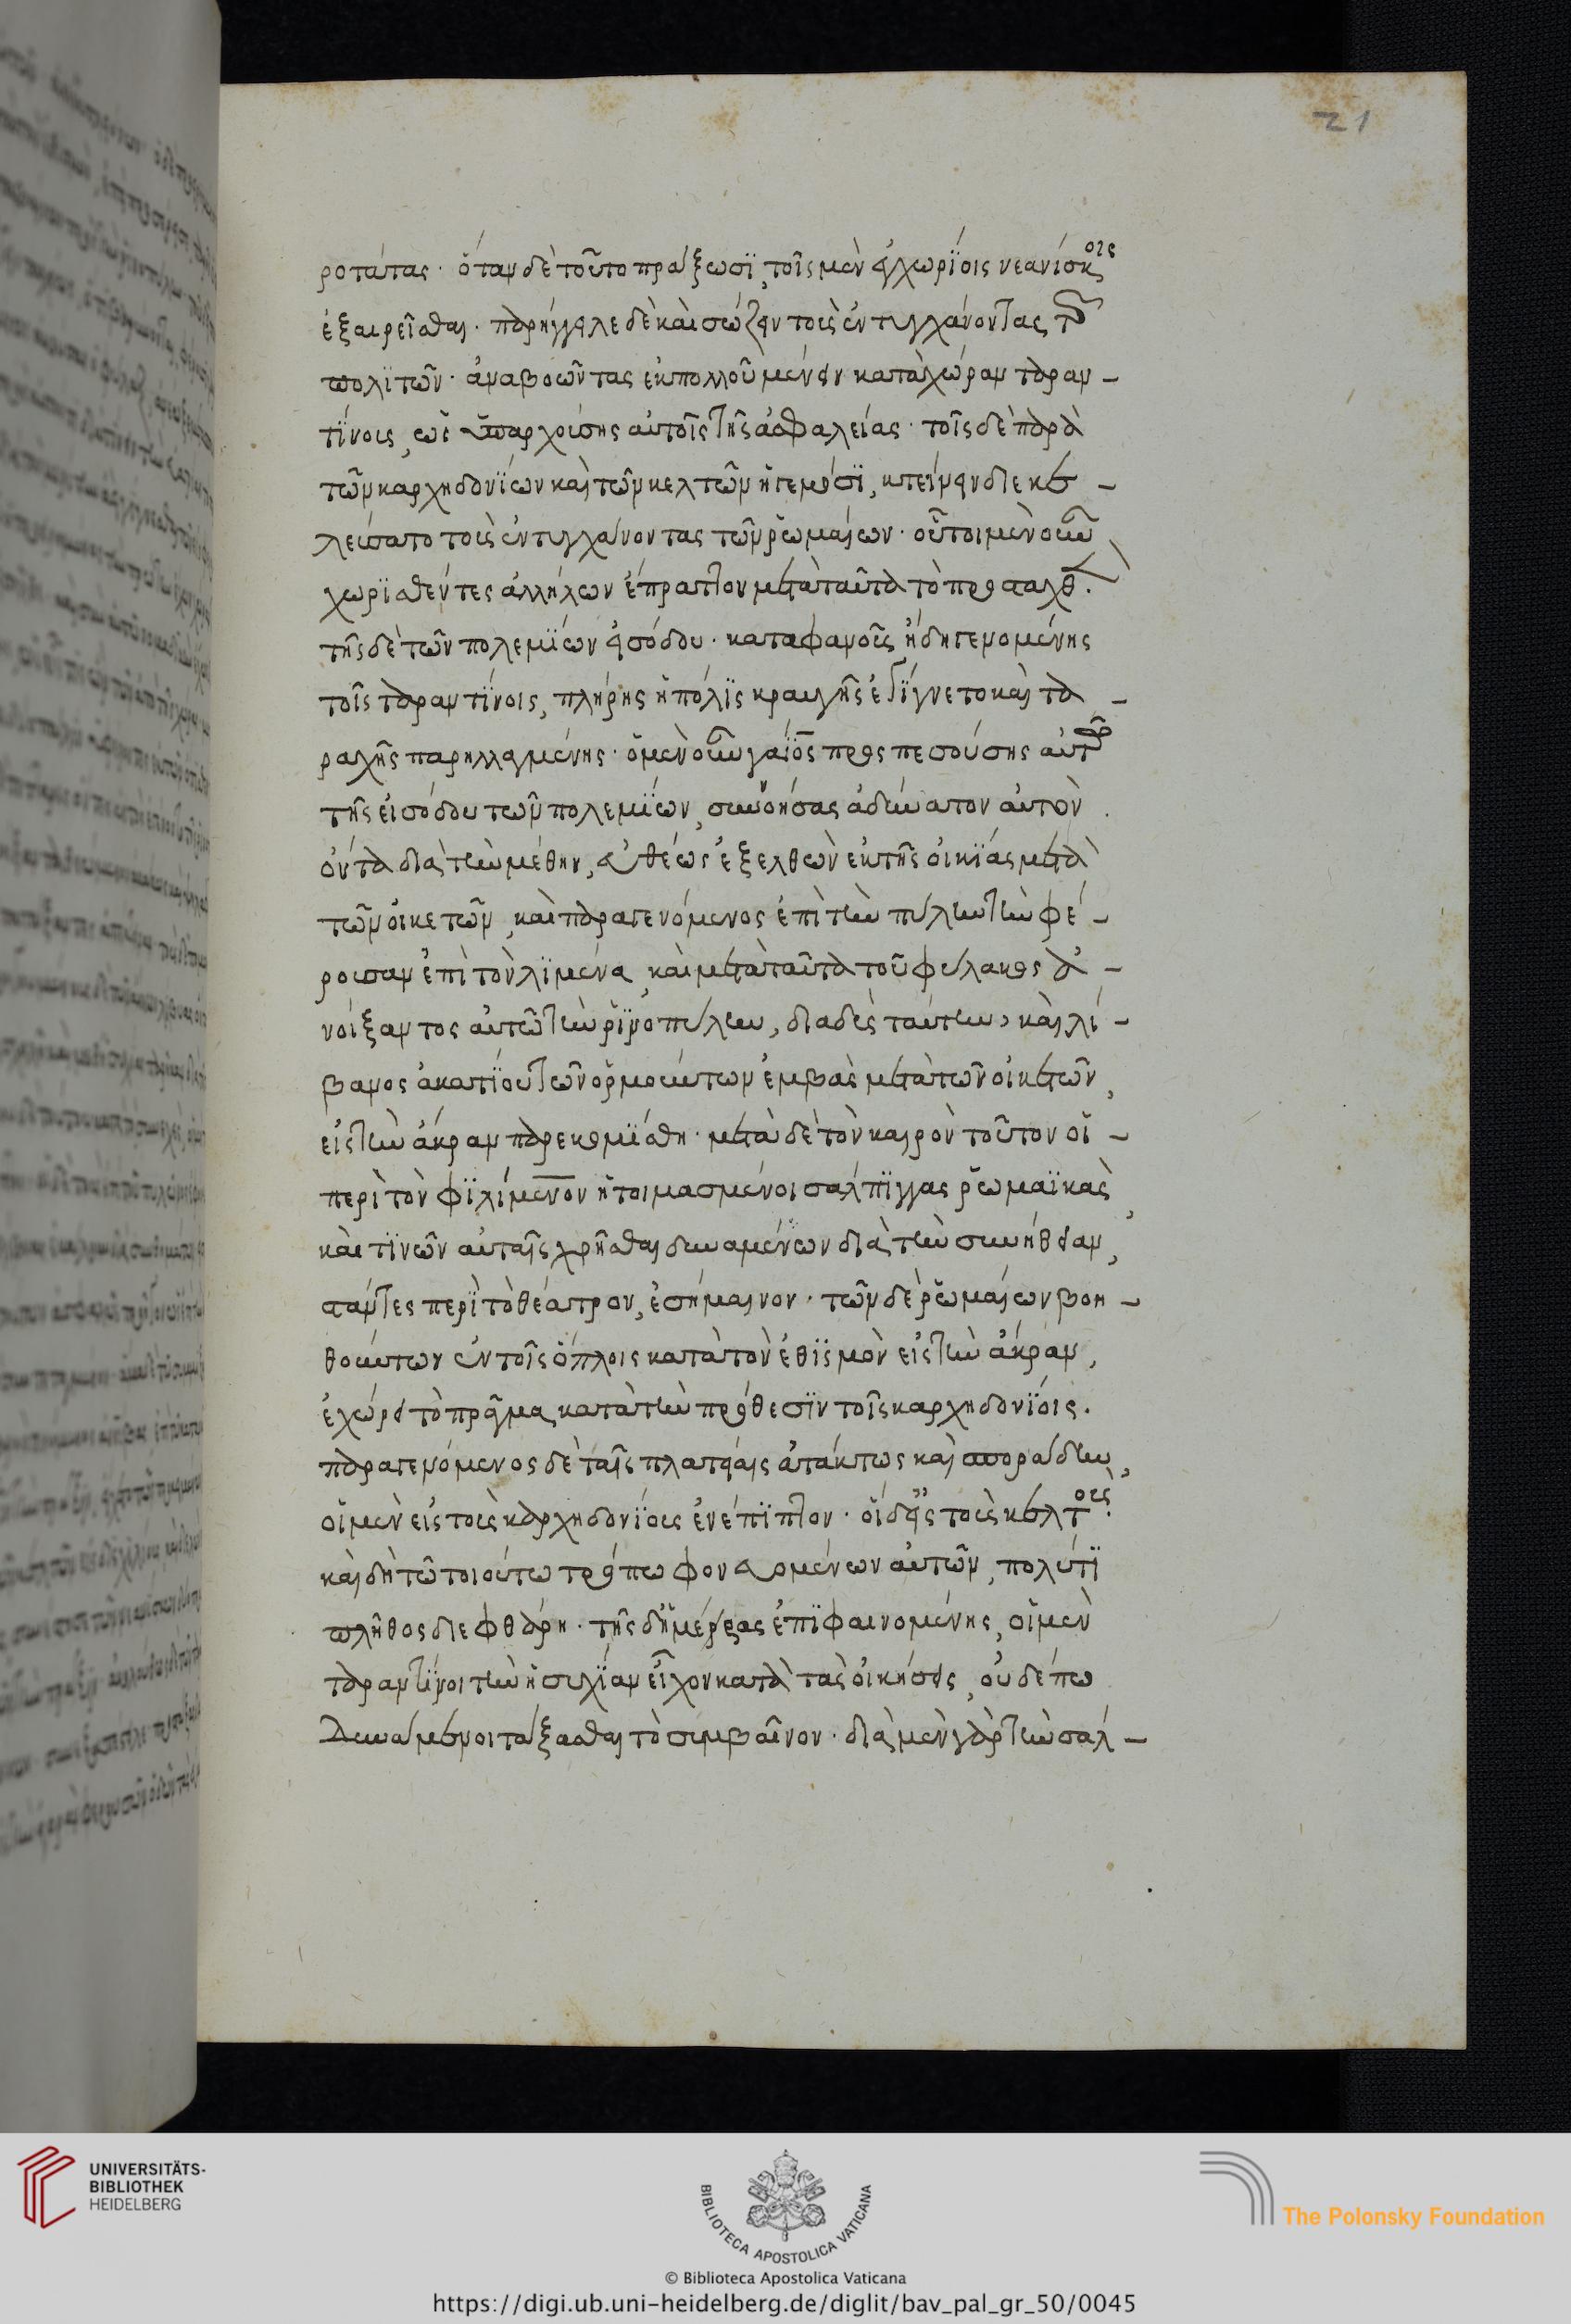 ροτάτας · ὅταν δὲ τοῦτο πράξωσϊ, τοῖς μὲν ἐγχωρΐοις νεανίσκοις
ἐξαιρεῖσθαι · παρήγγειλε δὲ καὶ σώζειν τοὺς ἐντυγχάνοντας τῶν
πολϊτῶν · ἀναβοῶντας ἐκ πολλοῦ μένειν κατὰ χώραν ταραν-
τΐνους, ὡς ὑπαρχούσης αὐτοῖς τῆς ἀσφαλείας · τοῖς δὲ παρὰ
τῶν καρχηδονΐων καὶ τῶν κελτῶν ἡγεμόσϊ, κτείνειν διεκε-
λεύσατο τοὺς ἐντυγχάνοντας τῶν ῥωμαίων · οὗτοι μὲν οὖν
χωρϊσθέντες ἀλλήλων ἔπραττον μετὰ ταῦτα τὸ προσταχθέν.
τῆς δὲ τῶν πολεμΐων εἰσόδου · καταφανοῦς ἤδη γενομένης
τοῖς ταραντΐνοις, πλήρης ἡ πόλϊς κραυγῆς ἐγΐγνετο καὶ τα-
ραχῆς παρηλλαγμένης · ὁ μὲν οὖν γάϊος προσπεσούσης αὐτῷ
τῆς εἰσόδου τῶν πολεμΐων, συννοήσας ἀδύνατον αὑτὸν
ὄντα διὰ τὴν μέθην, εὐθέως ἐξελθὼν ἐκ τῆς οἰκΐας μετὰ
τῶν οἰκετῶν, καὶ παραγενόμενος ἐπὶ τὴν πύλην τὴν φέ-
ρουσαν ἐπὶ τὸν λϊμένα, καὶ μετὰ ταῦτα τοῦ φύλακος ἀ-
νοίξαντος αὐτῶ τὴν ῥϊνοπύλην, διαδὺς ταύτην, καὶ λί-
βανος ἀκατΐου τῶν ὁρμούντων ἐμβὰς μετὰ τῶν οἰκετῶν,
εἰς τὴν ἄκραν παρεκομΐσθη · μετὰ δὲ τὸν καιρὸν τοῦτον οἱ
περὶ τὸν φϊλίμενον ἡτοιμασμένοι σάλπϊγγας ῥωμαϊκὰς,
καὶ τϊνῶν αὐταῖς χρῆσθαι δυναμένων διὰ τὴν συνήθειαν,
στάντες περϊ τὸ θέατρον, ἐσήμαινον · τῶν δὲ ῥωμαίων βοη-
θούντων ἐν τοῖς ὅπλοις κατὰ τὸν ἐθϊσμὸν εἰς τὴν ἄκραν,
ἐχώρει τὸ πρᾶγμα κατὰ τὴν πρόθεσϊν τοῖς καρχηδονΐοις.
παραγενόμενος δὲ ταῖς πλατείαις ἀτάκτως καὶ σποράδην,
οἱ μὲν εἰς τοὺς καρχηδονΐους ἐνέπϊπτον · οἱ δ' εἰς τοὺς κελτούς.
καὶ δὴ τῶ τοιούτω τρόπω φονευομένων αὐτῶν, πολύ τϊ
πλῆθος διεφθάρη · τῆς δ' ἡμέρας ἐπϊφαινομένης, οἱ μὲν
ταραντΐνοι τὴν ἡσυχΐαν εἶχον κατὰ τὰς οἰκήσεις, οὐδέπω
δυνάμενοι τάξασθαι τὸ συμβαῖνον · διὰ μὲν γὰρ τὴν σάλ-
21
UNIVERSITÄTS-
BIBLIOTHEK
HEIDELBERG
BIBLIOTECA APOSTOLICA VATICANA
The Polonsky Foundation
© Biblioteca Apostolica Vaticana
https://digi.ub.uni-heidelberg.de/diglit/bav_pal_gr_50/0045